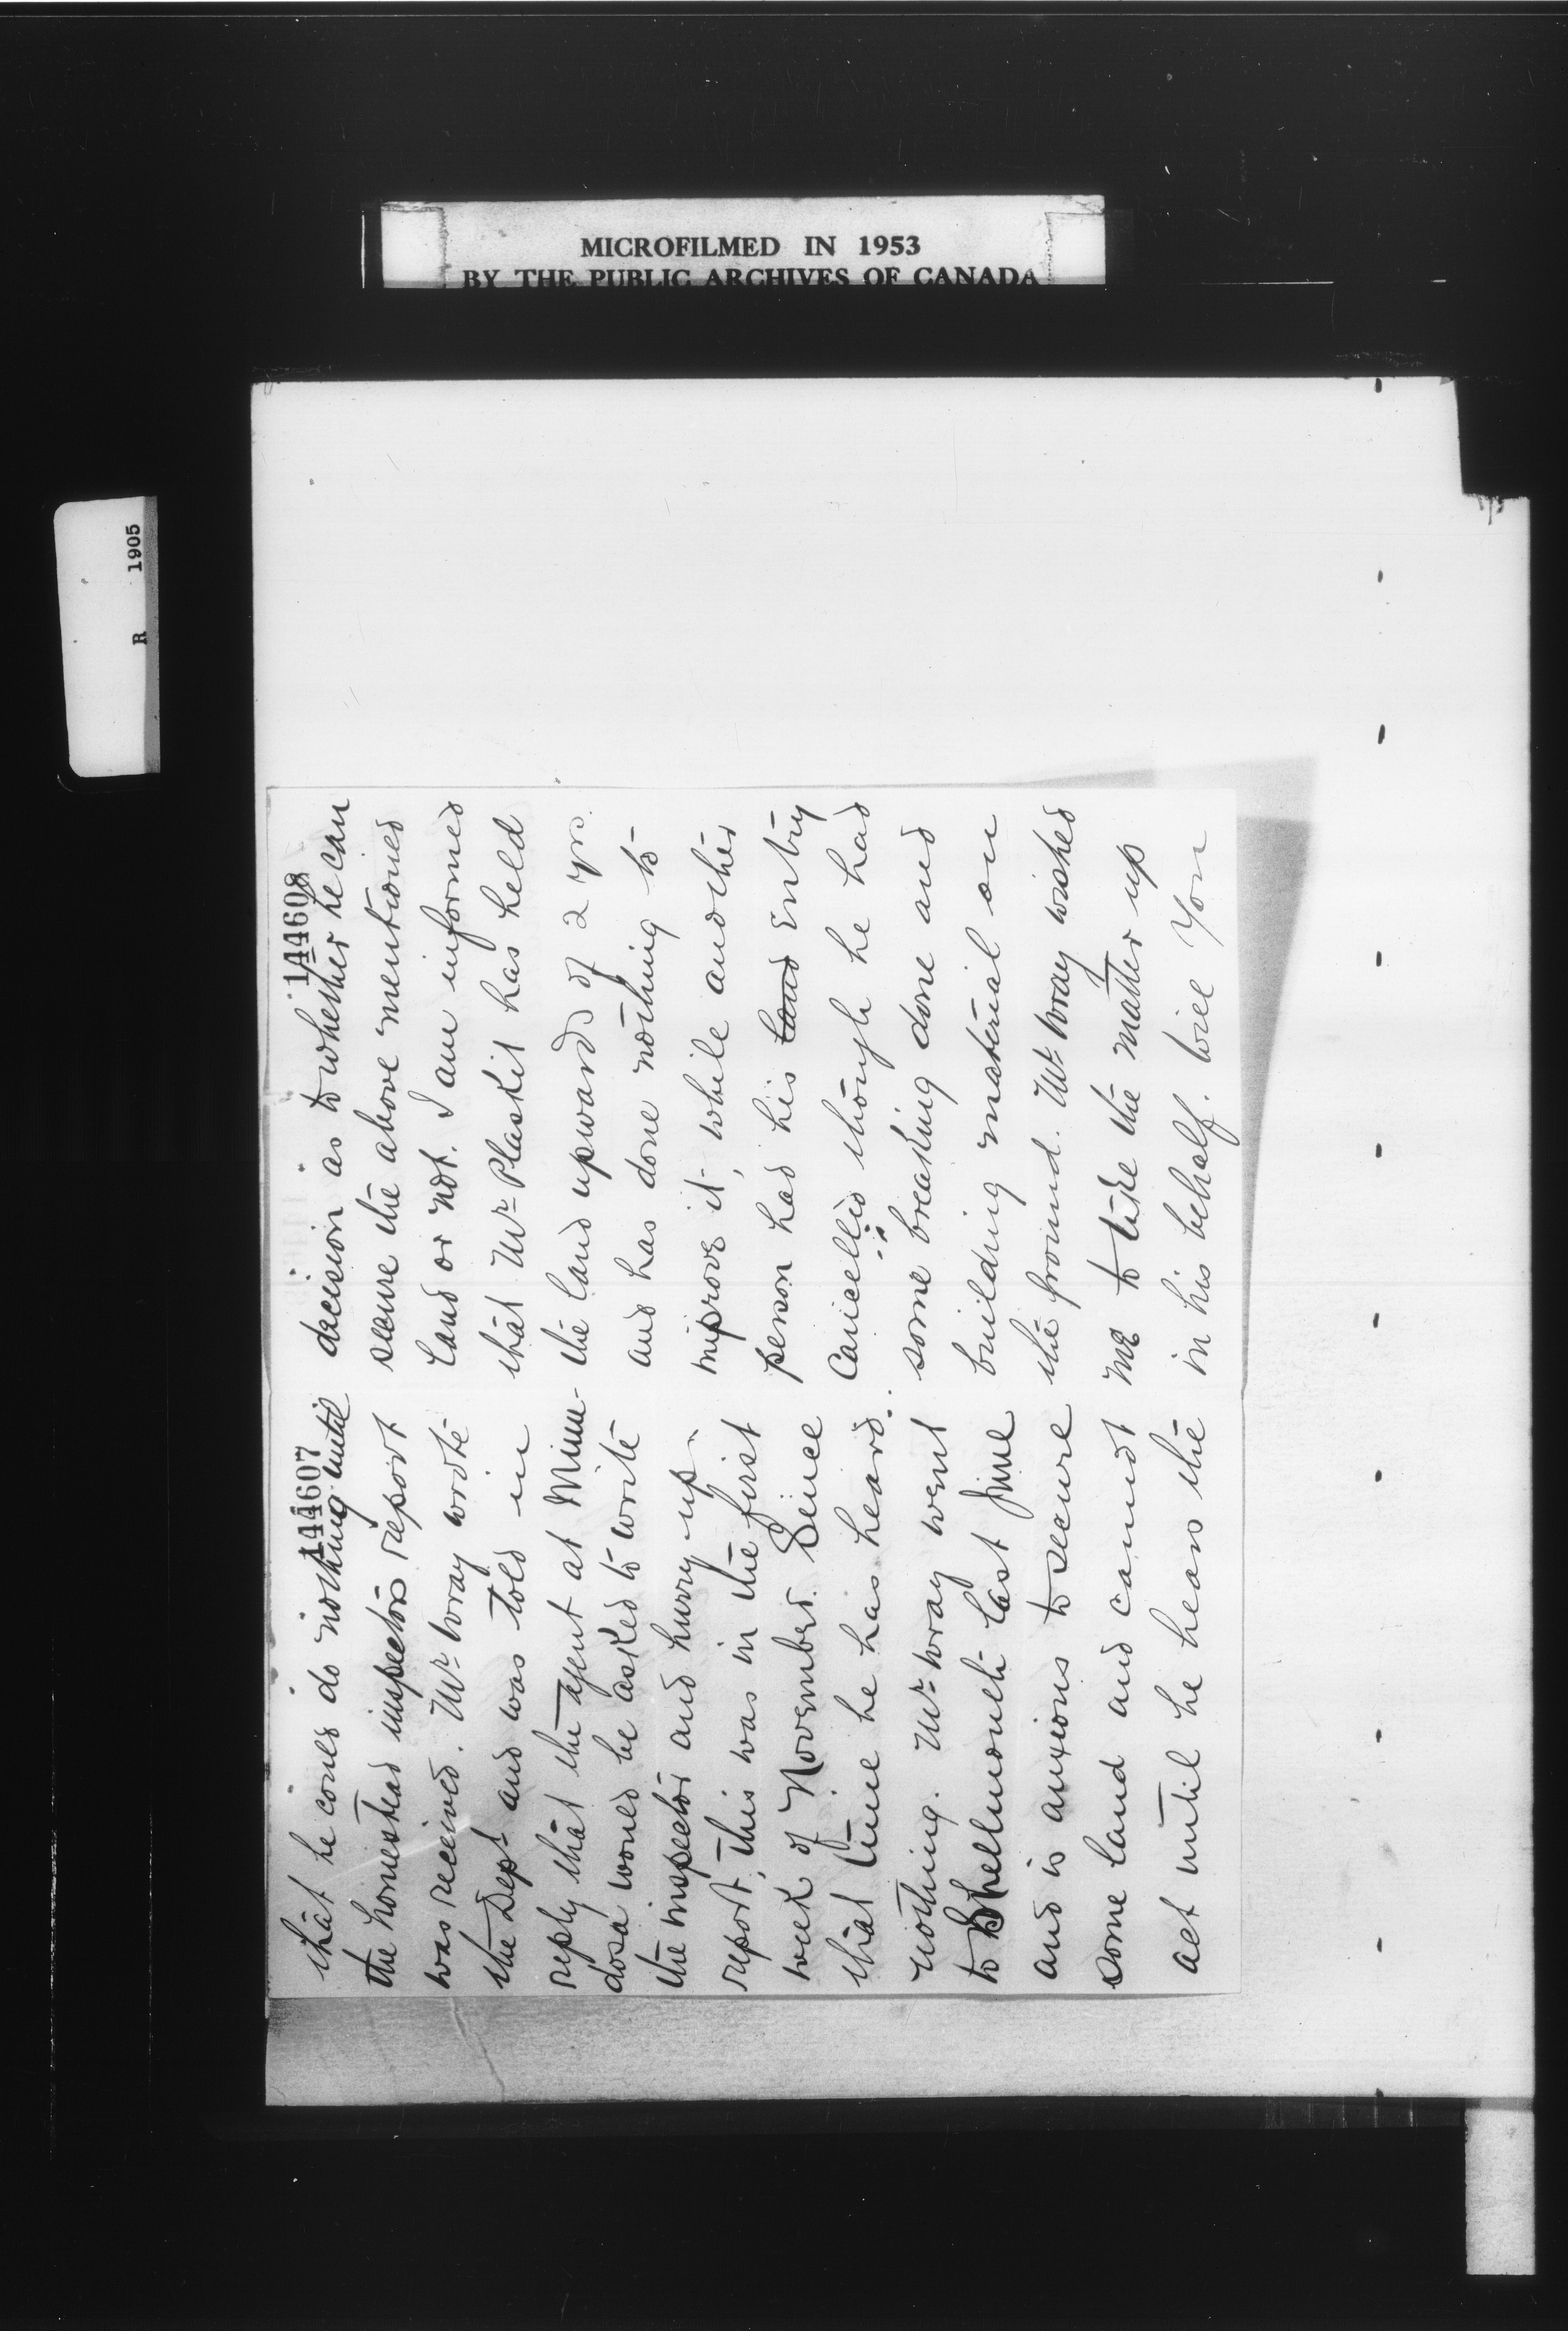 MICROFILMED IN 1953
BY THE PUBLIC ARCHIVES OF CANADA
R 1905
144607
that he could do nothing until
the homestead inspectors report
was received. Mr Wray wrote
the Dept and was told in
reply that the agent at Minne-
dosa would be asked to write
the inspector and hurry up
report, this was in the first
week of November. Since
that time he has heard
nothing. Mr Wray went
to Shellmouth last June
and is anxious to secure
some land and cannot
act until he hears the
144608
decision as to whether he can
secure the above mentioned
land or not. I am informed
that Mr Plaskit has held
the land upwards of 2 yrs.
and has done nothing to
improve it, while another
person had his land entry
cancelled though he had
some breaking done and
building material on
the ground. Mr Wray wished
me to take the matter up
in his behalf. Will you